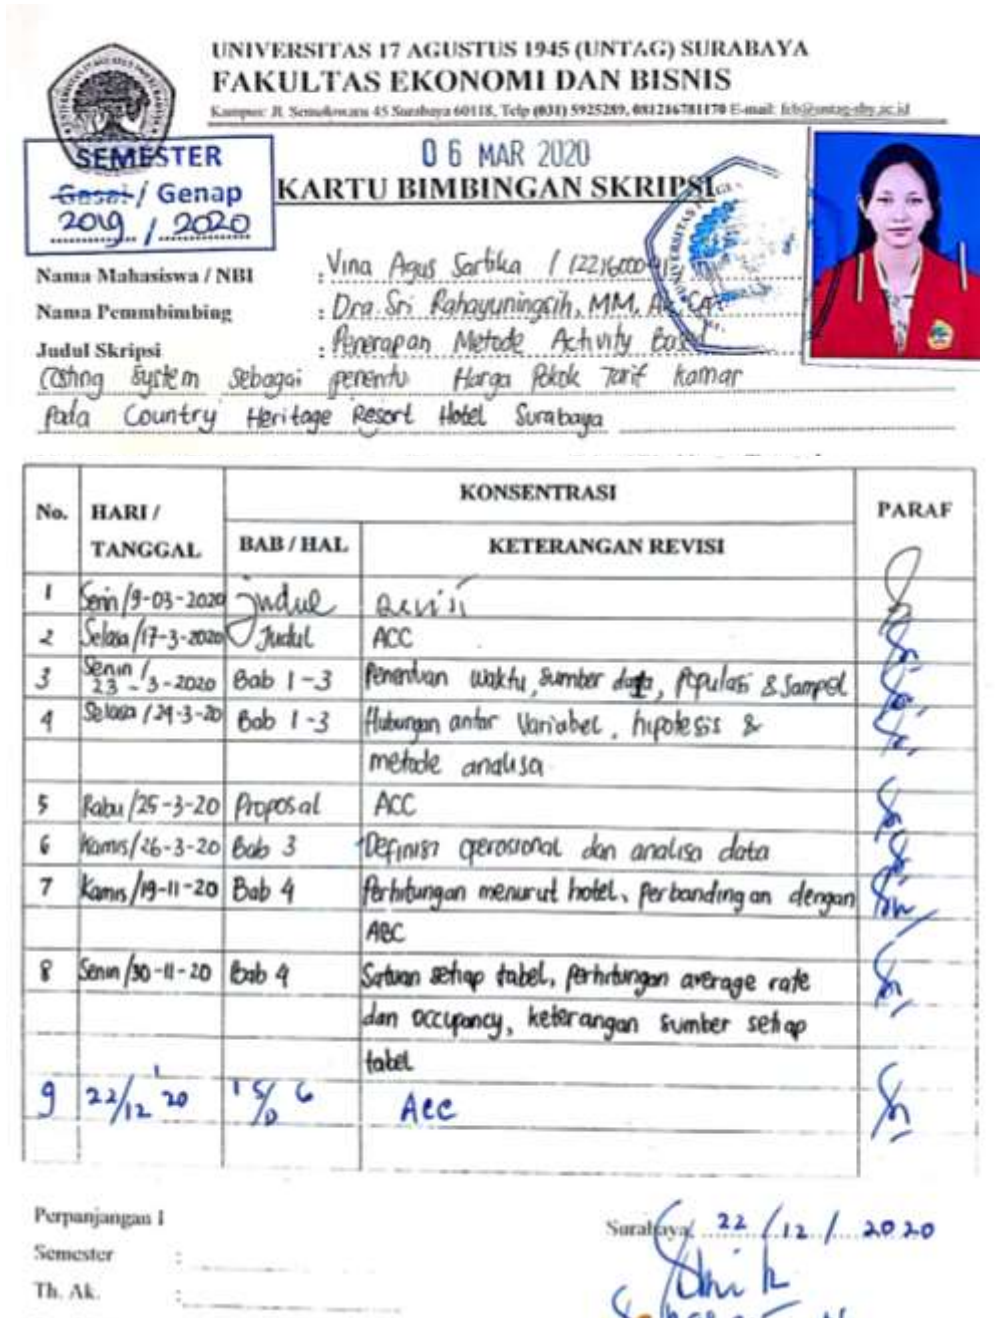 UNIVERSITAS 17 AGUSTUS 1945 (UNTAG) SURABAYA
FAKULTAS EKONOMI DAN BISNIS
Kampus: Jl. Semolowaru 45 Surabaya 60118, Telp (031) 5925289, 081216781170 E-mail: feb@untag-sby.ac.id
SEMESTER
Gasal / Genap
2019 / 2020
06 MAR 2020
KARTU BIMBINGAN SKRIPSI
Nama Mahasiswa / NBI : Vina Agus Sartika /
Nama Pemmbimbing : Dra. Sri Rahayuningsih, MM, Ak, CA.
Judul Skripsi : Penerapan Metode Activity Based
Costing System sebagai penentu Harga Pokok Tarif Kamar
Pada Country Heritage Resort Hotel Surabaya
No. HARI / TANGGAL KONSENTRASI PARAF
BAB / HAL KETERANGAN REVISI
1 Senin /9-03-2020 Judul Revisi
2 Selasa /17-3-2020 Judul ACC
3 Senin / 23-3-2020 Bab 1-3 Penentuan waktu, sumber data, Populasi & Sampel
4 Selasa /24-3-20 Bab 1-3 Hubungan antar Variabel, hipotesis &
metode analisa
5 Rabu /25-3-20 Proposal ACC
6 Kamis /26-3-20 Bab 3 Definisi operasional dan analisa data
7 Kamis /19-11-20 Bab 4 Perhitungan menurut hotel, perbandingan dengan
ABC
8 Senin /30-11-20 Bab 4 Satuan setiap tabel, perhitungan average rate
dan occupancy, keterangan sumber setiap
tabel
9 22/12 '20 1 S/D 6 Acc
Perpanjangan I
Semester :
Th. Ak. :
Surabaya, 22 / 12 / 2020